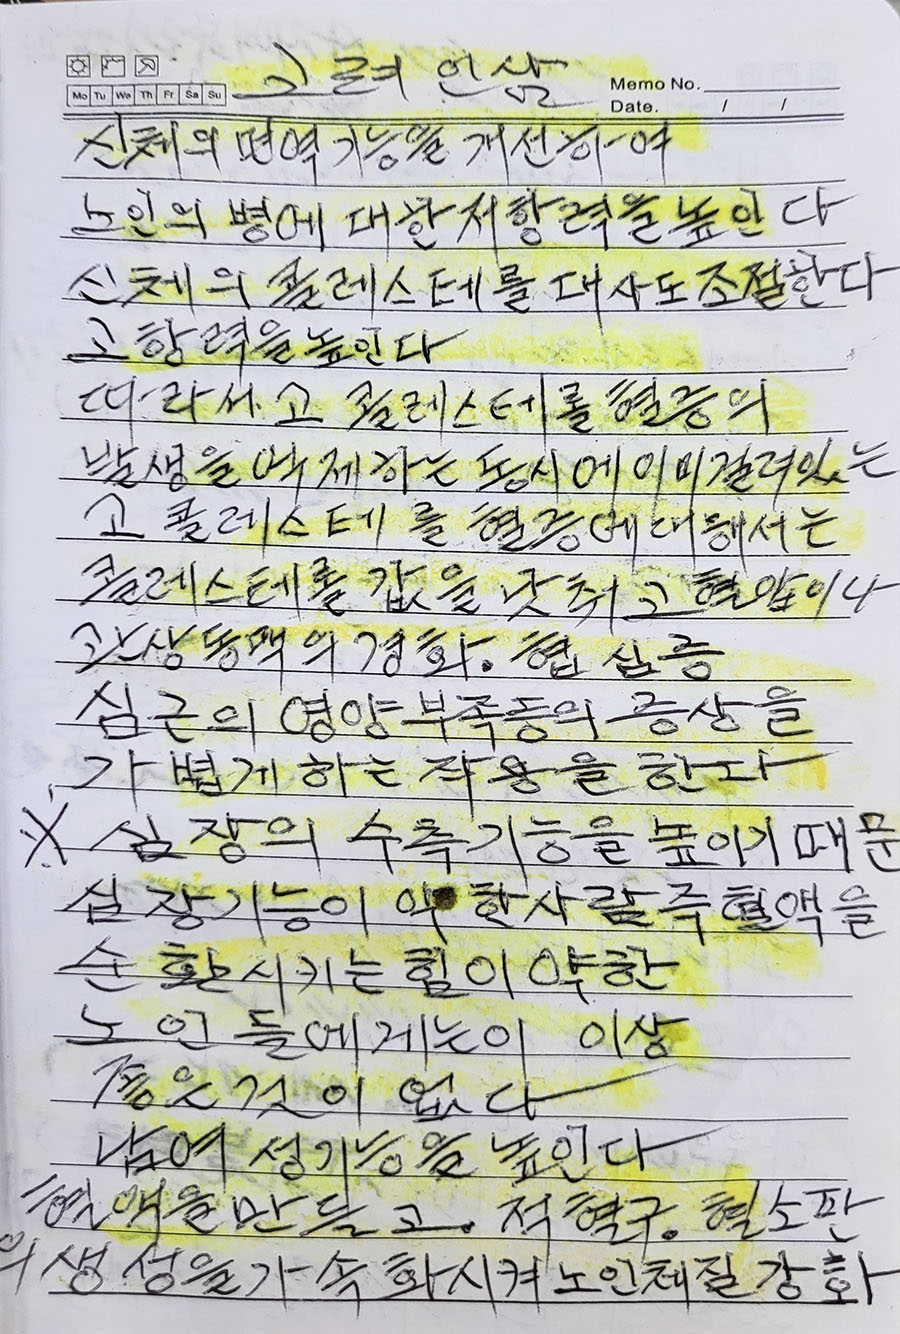 고려인삼
Memo No.
Mo Tu We Th Fr Sa Su
Date. / /
신체의 면역기능을 개선하여
노인의 병에 대한 저항력을 높인다
신체의 콜레스테롤 대사도 조절한다
고 항력을 높인다
따라서 고 콜레스테롤 혈증의
발생을 억제하는 동시에 이미 걸려있는
고 콜레스테롤 혈증에 대해서는
콜레스테롤 값을 낮춰 고혈압이나
관상동맥의 경화. 협심증
심근의 영양부족등의 증상을
가볍게 하는 작용을 한다
※ 심장의 수축기능을 높이기 때문
심장기능이 약한사람 즉 혈액을
순환시키는 힘이 약한
노인들에게는이 이상
좋은 것이 없다
남여 성기능을 높인다
혈액을 만들고. 적혈구. 혈소판
의 생성을 가속화시켜 노인체질강화